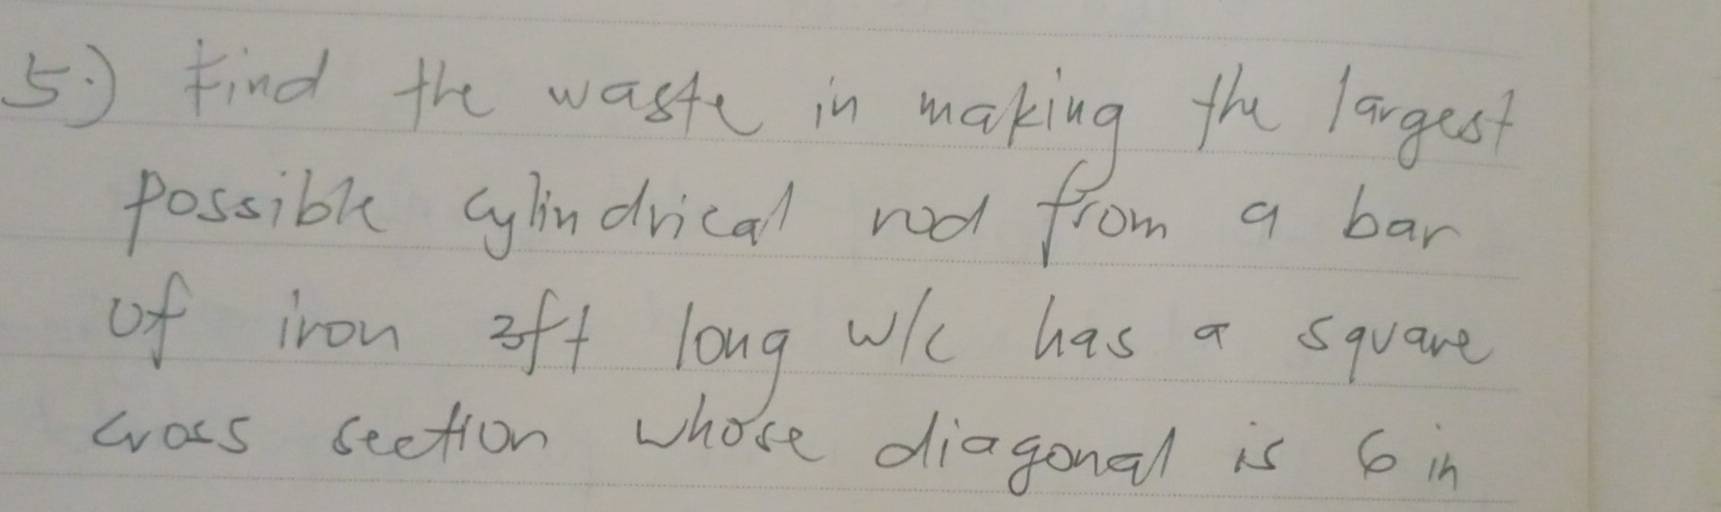 5.) Find the waste in making the largest
possible cylindrical rod from a bar
of iron 3ft long w/c has a square
cross section whose diagonal is 6 in